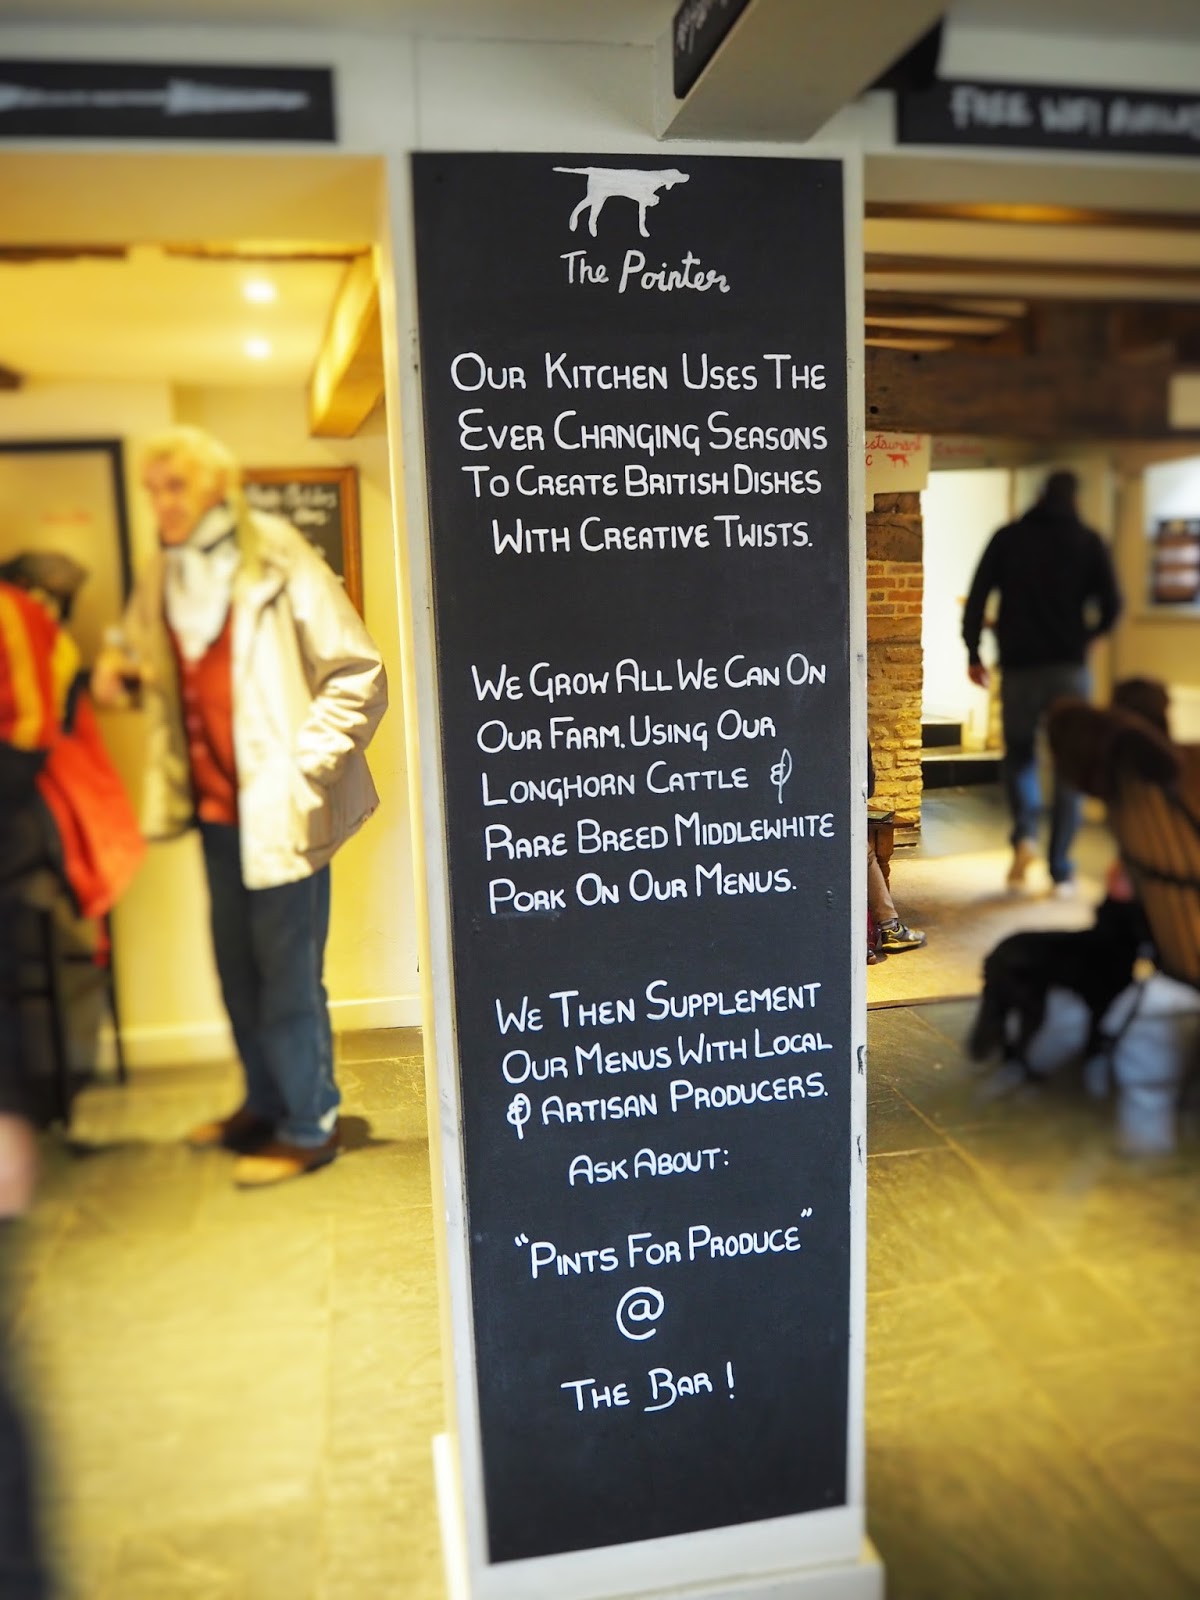 FREE WIFI
The Pointer
OUR KITCHEN USES THE
EVER CHANGING SEASONS
TO CREATE BRITISH DISHES
WITH CREATIVE TWISTS.
WE GROW ALL WE CAN ON
OUR FARM. USING OUR
LONGHORN CATTLE &
RARE BREED MIDDLEWHITE
PORK ON OUR MENUS.
WE THEN SUPPLEMENT
OUR MENUS WITH LOCAL
& ARTISAN PRODUCERS.
ASK ABOUT:
"PINTS FOR PRODUCE"
@
THE BAR!